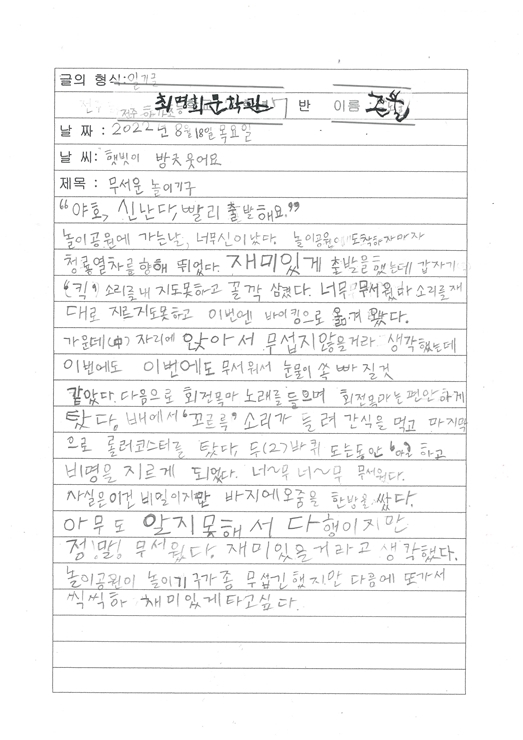 글의 형식: 일기글
최명희문학관 반 이름
날 짜 : 2022년 8월 18일 목요일
날 씨 : 햇빛이 방긋 웃어요
제목 : 무서운 놀이기구
"야호, 신난다, 빨리 출발해요."
놀이공원에 가는날, 너무신이났다. 놀이공원에 도착하자마자
청룡열차를 향해 뛰었다. 재미있게 출발을 했는데 갑자기
"킥" 소리를 내지도못하고 꼴깍 삼켰다. 너무 무서워 소리를 제
대로 지르지도못하고 이번엔 바이킹으로 옮겨 봤다.
가운데(中) 자리에 앉아서 무섭지않을거라 생각했는데
이번에도 이번에도 무서워서 눈물이 쏙 빠질것
같았다. 다음으로 회전목마 노래를 들으며 회전목마는 편안하게
탔다. 배에서 "꼬르륵" 소리가 들려 간식을 먹고 마지막
으로 롤러코스터를 탔다. 두(2)바퀴 도는동안 하고
비명을 지르게 되었다. 너~무 너~무 무서웠다.
사실은 이건 비밀이지만 바지에 오줌을 한방울 쌌다.
아무도 알지못해서 다행이지만
정말! 무서웠다. 재미있을거라고 생각했다.
놀이공원이 놀이기구가 좀 무섭긴했지만 다음에 또가서
씩씩하 재미있게타고싶다.